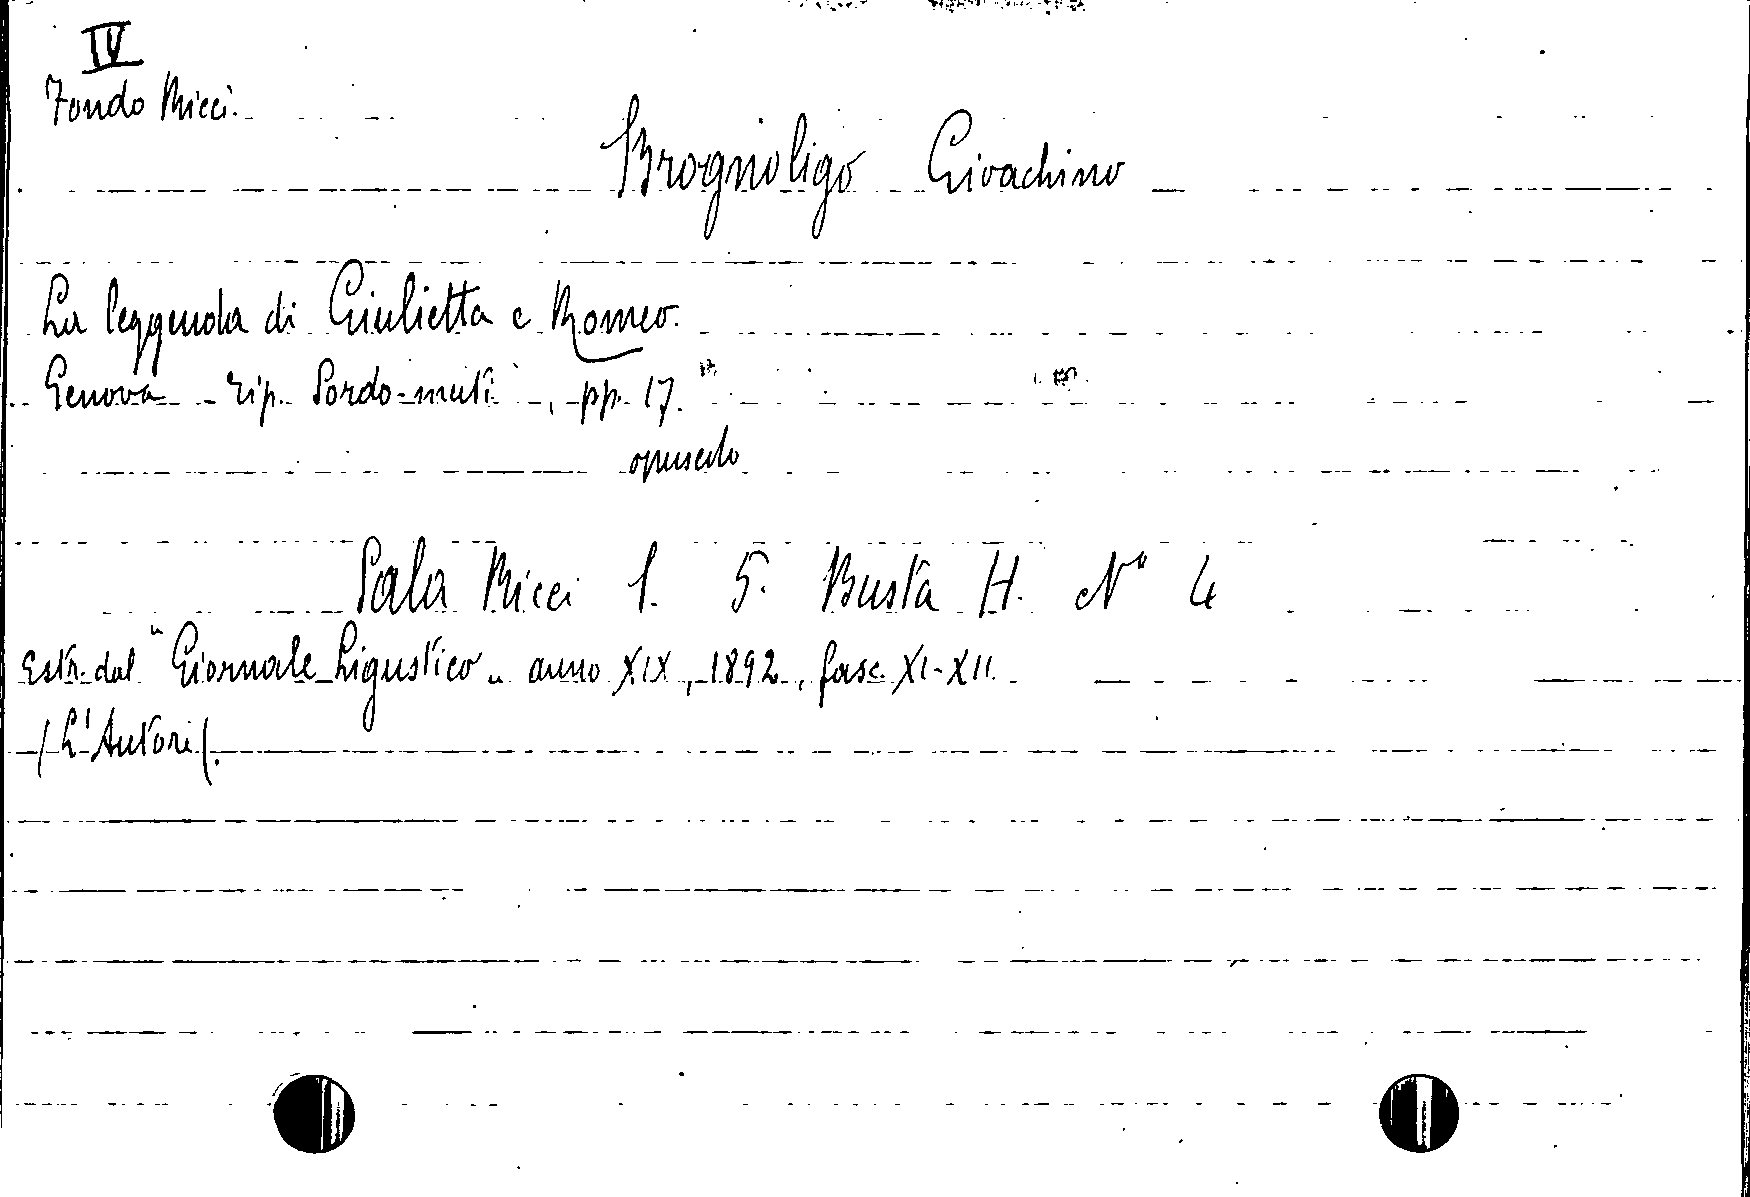 IV
Fondo Ricci.
Brognoligo Gioachino
La leggenda di Giulietta e Romeo.
Genova - Tip. Sordo-muti, pp. 17.
opuscolo
Sala Ricci 1. 5. Busta H. N° 4
Estr. dal "Giornale Ligustico" anno XIX, 1892, fasc. XI-XII.
/L'Autore/.